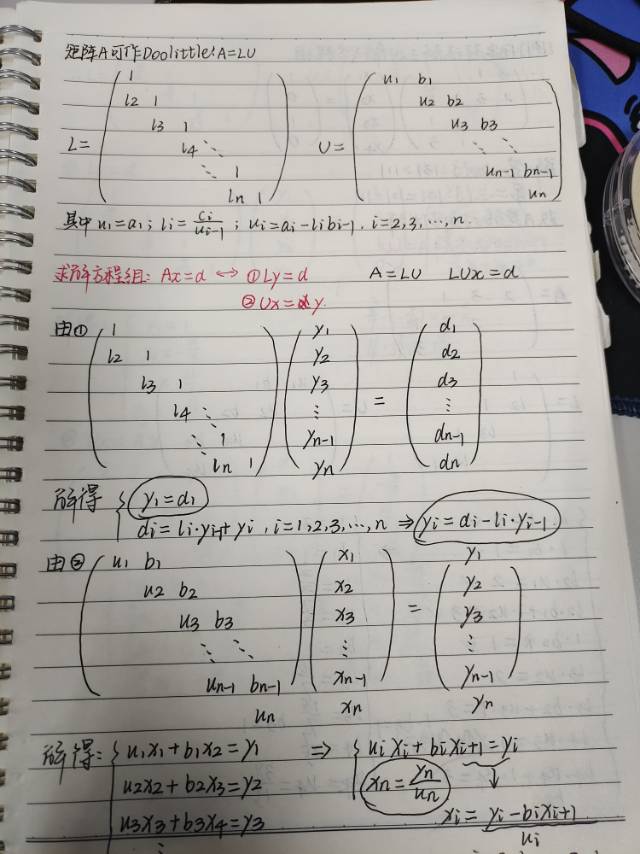 矩阵A可作Doolittle: A=LU
L = ( 1
l2 1
l3 1
l4 ⋱
⋱ 1
ln 1 )
U = ( u1 b1
u2 b2
u3 b3
⋱ ⋱
un-1 bn-1
un )
其中 u1=a1; li=ci/ui-1; ui=ai-libi-1, i=2,3,…,n.
求解方程组: Ax=d ⇔ ① Ly=d A=LU LUx=d
② Ux=y.
由① ( 1
l2 1
l3 1
l4 ⋱
⋱ 1
ln 1 ) ( y1
y2
y3
⋮
yn-1
yn ) = ( d1
d2
d3
⋮
dn-1
dn )
解得 { y1=d1
di=li·yi-1+yi, i=1,2,3,…,n ⇒ yi=di-li·yi-1.
由② ( u1 b1
u2 b2
u3 b3
⋱ ⋱
un-1 bn-1
un ) ( x1
x2
x3
⋮
xn-1
xn ) = ( y1
y2
y3
⋮
yn-1
yn )
解得: { u1x1+b1x2=y1 ⇒ { uixi+bixi+1=yi
u2x2+b2x3=y2 xn=yn/un
u3x3+b3x4=y3 xi=(yi-bixi+1)/ui
⋮